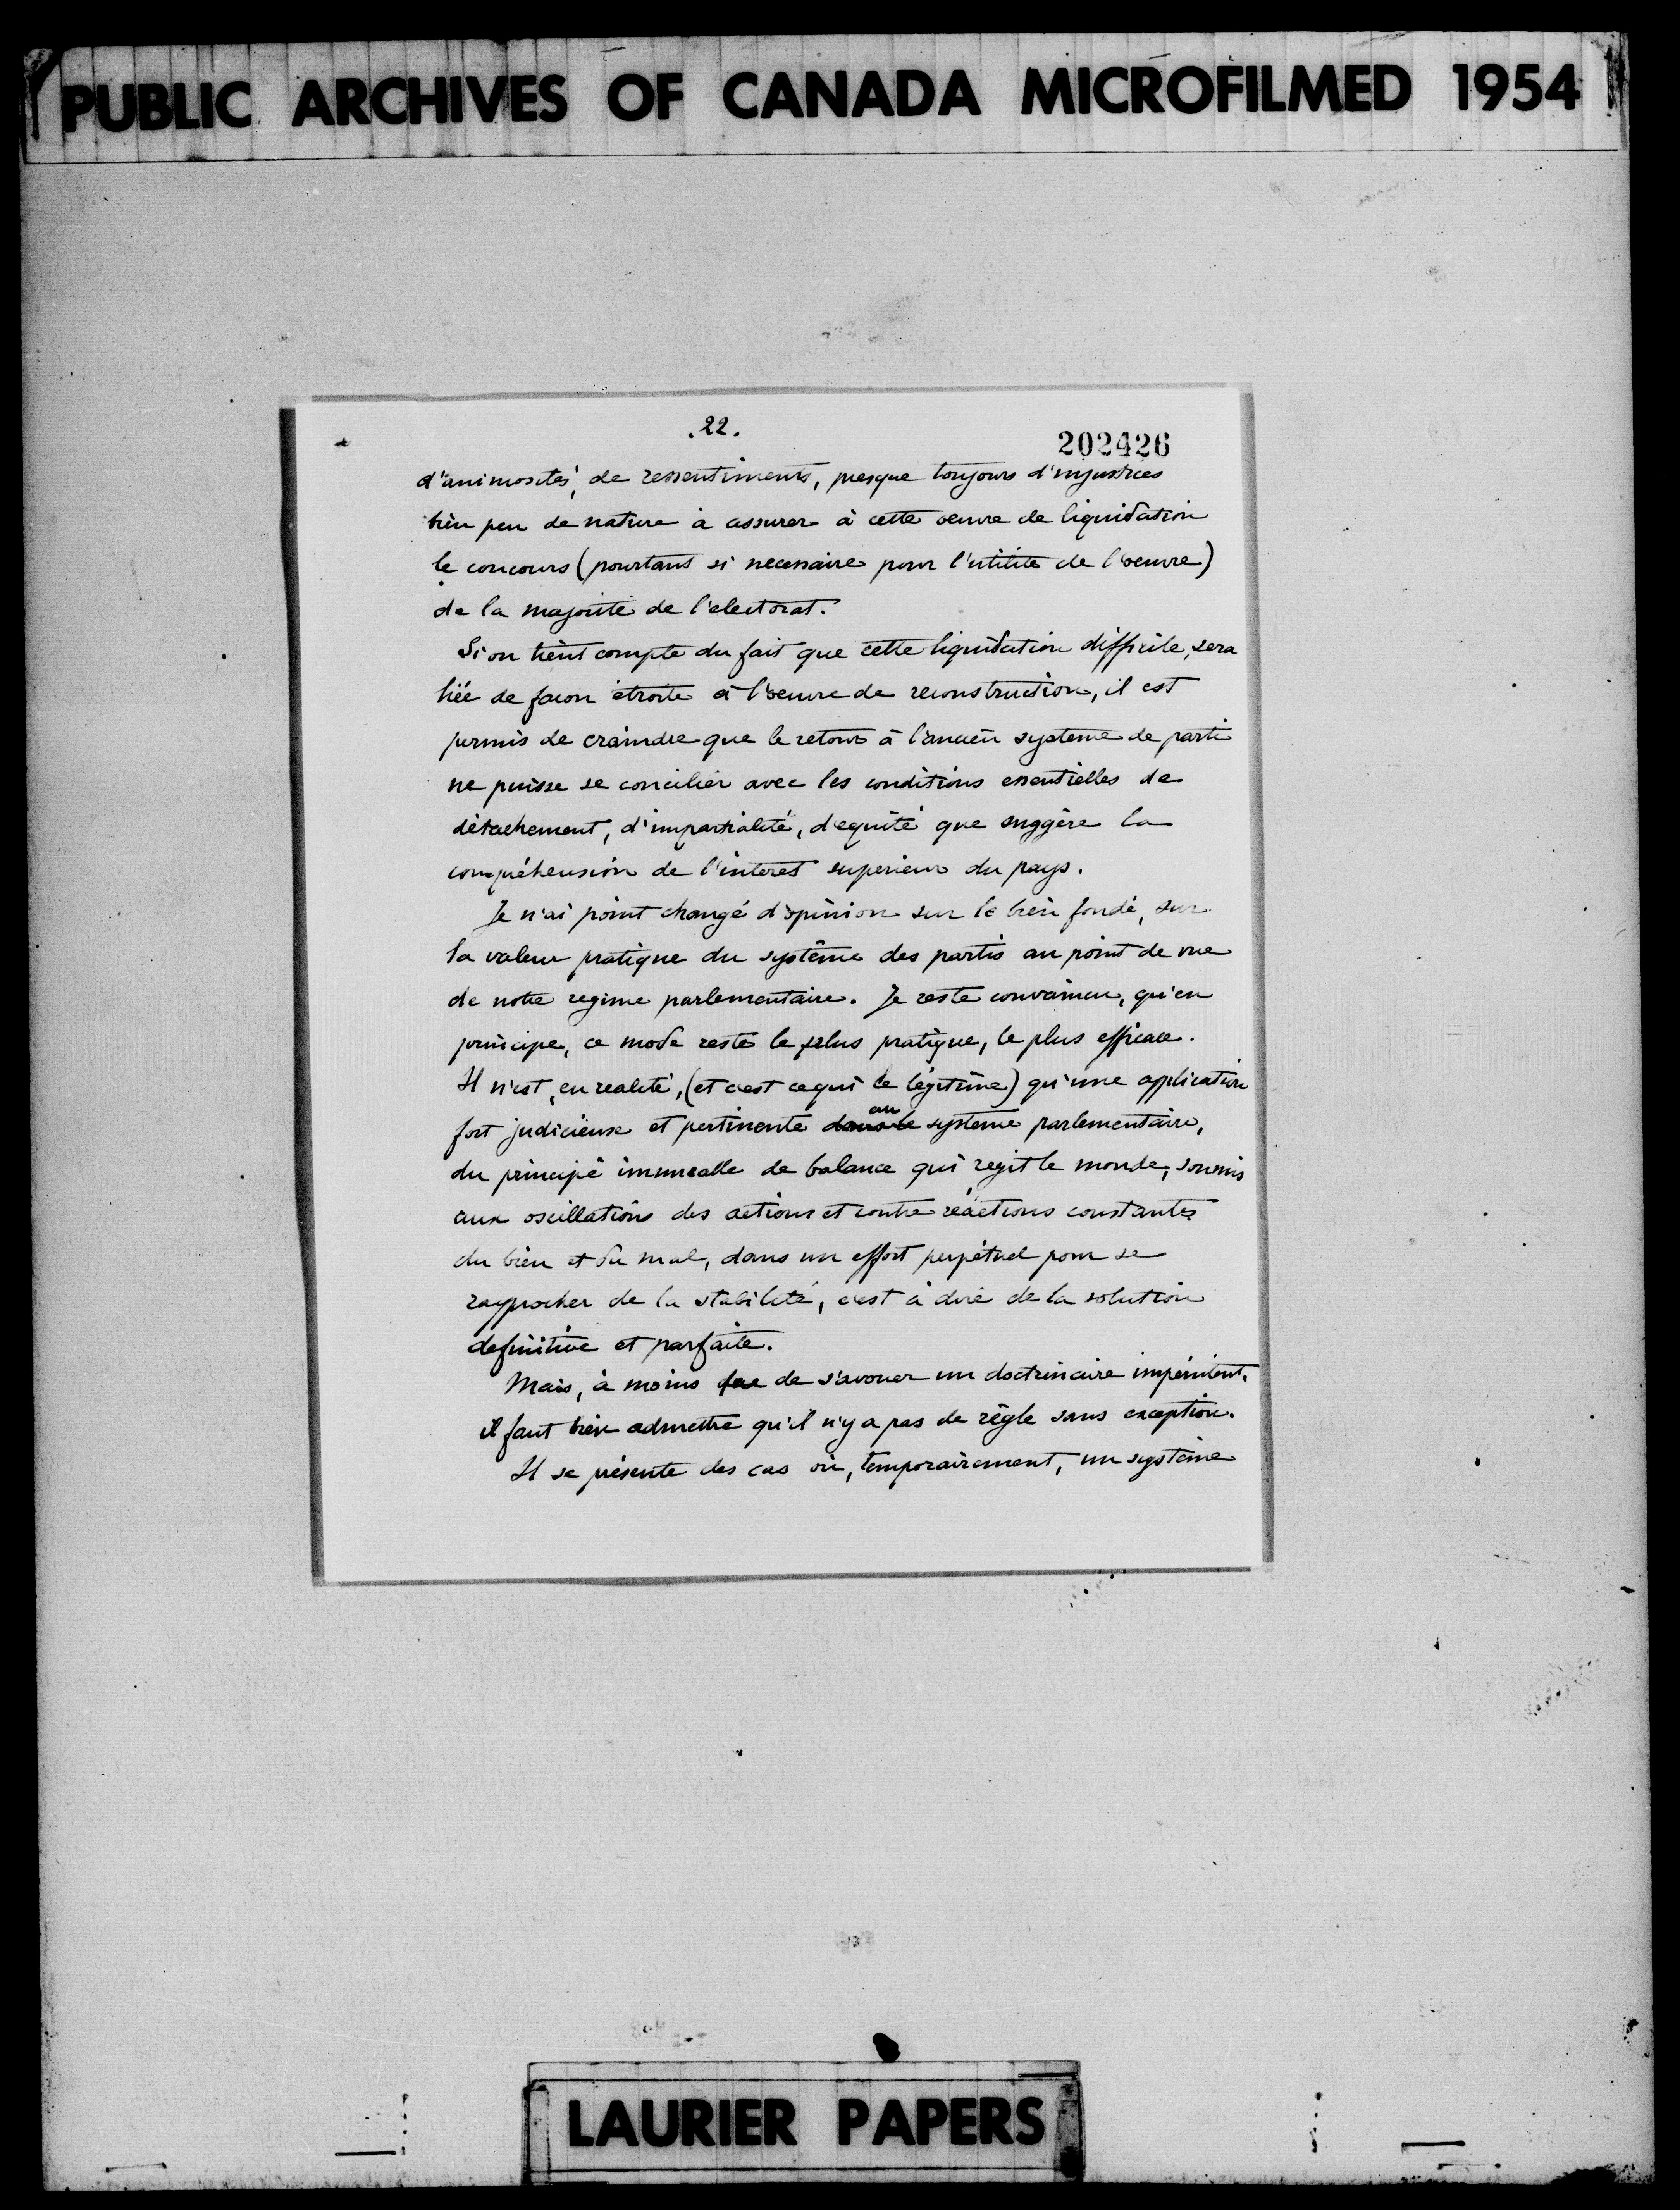 PUBLIC ARCHIVES OF CANADA MICROFILMED 1954
.22.
202426
d'animosités, de ressentiments, presque toujours d'injustices
bien peu de nature à assurer à cette oeuvre de liquidation
le concours (pourtant si necessaire pour l'utilité de l'oeuvre)
de la majorité de l'electorat.
Si on tient compte du fait que cette liquidation difficile, sera
liée de façon étroite à l'oeuvre de reconstruction, il est
permis de craindre que le retour à l'ancien systeme de parti
ne puisse se concilier avec les conditions essentielles de
détachement, d'impartialité, d'equité que suggère la
compréhension de l'interet superieur du pays.
Je n'ai point changé d'opinion sur le bien fondé, sur
la valeur pratique du système des partis au point de vue
de notre regime parlementaire. Je reste convaincu, qu'en
principe, ce mode reste le plus pratique, le plus efficace.
Il n'est, en realité, (et c'est ce qui le légitime) qu'une application
au
fort judicieuse et pertinente dans le systeme parlementaire,
du principe immuable de balance qui régit le monde, soumis
aux oscillations des actions et contre réactions constantes
du bien et du mal, dans un effort perpétuel pour se
rapprocher de la stabilité, c'est à dire de la solution
definitive et parfaite.
Mais, à moins que de s'avouer un doctrinaire impénitent,
il faut bien admettre qu'il n'y a pas de règle sans exception.
Il se présente des cas où, temporairement, un système
LAURIER PAPERS